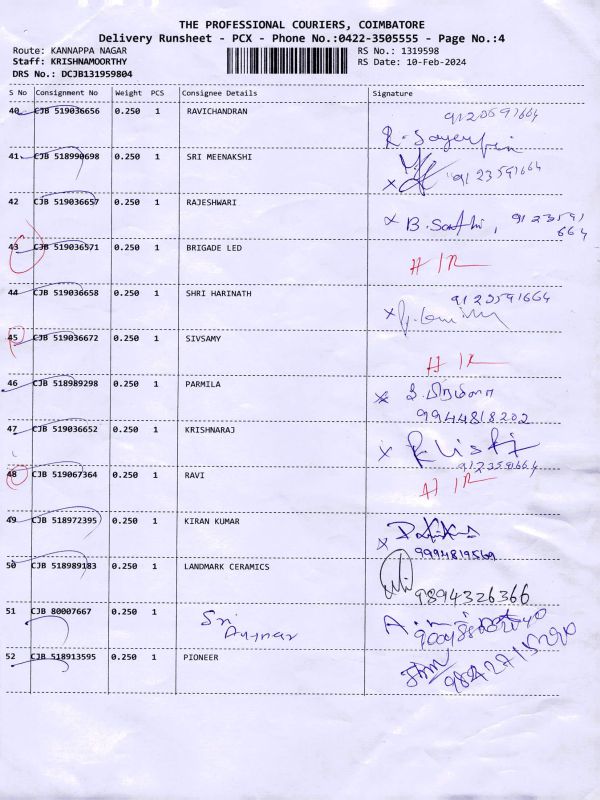 THE PROFESSIONAL COURIERS, COIMBATORE
Delivery Runsheet - PCX - Phone No.:0422-3505555 - Page No.:4
Route: KANNAPPA NAGAR RS No.: 1319598
Staff: KRISHNAMOORTHY RS Date: 10-Feb-2024
DRS No.: DCJB131959804
S No Consignment No Weight PCS Consignee Details Signature
9120591664
40 CJB 519036656 0.250 1 RAVICHANDRAN
41 CJB 518990698 0.250 1 SRI MEENAKSHI
x 9123591664
42 CJB 519036657 0.250 1 RAJESHWARI
x B. , 91 23591
664
43 CJB 519036571 0.250 1 BRIGADE LED
H / R
44 CJB 519036658 0.250 1 SHRI HARINATH 9123591664
x
45 CJB 519036672 0.250 1 SIVSAMY
H / R
46 CJB 518989298 0.250 1 PARMILA
x
9944818202
47 CJB 519036652 0.250 1 KRISHNARAJ
x
9123591664
48 CJB 519067364 0.250 1 RAVI
H / R
49 CJB 518972395 0.250 1 KIRAN KUMAR
x 9994819569
50 CJB 518989183 0.250 1 LANDMARK CERAMICS
9894326366
51 CJB 80007667 0.250 1 Sri
52 CJB 518913595 0.250 1 PIONEER